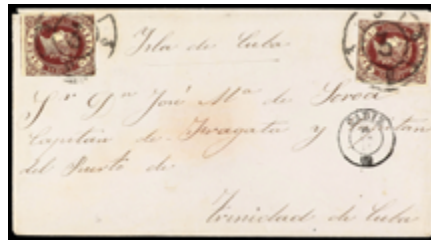 Isla de Cuba
Sr Dn José Ma de
Capitán de Fragata y Capitán
del Puerto de
Trinidad de Cuba
CADIZ